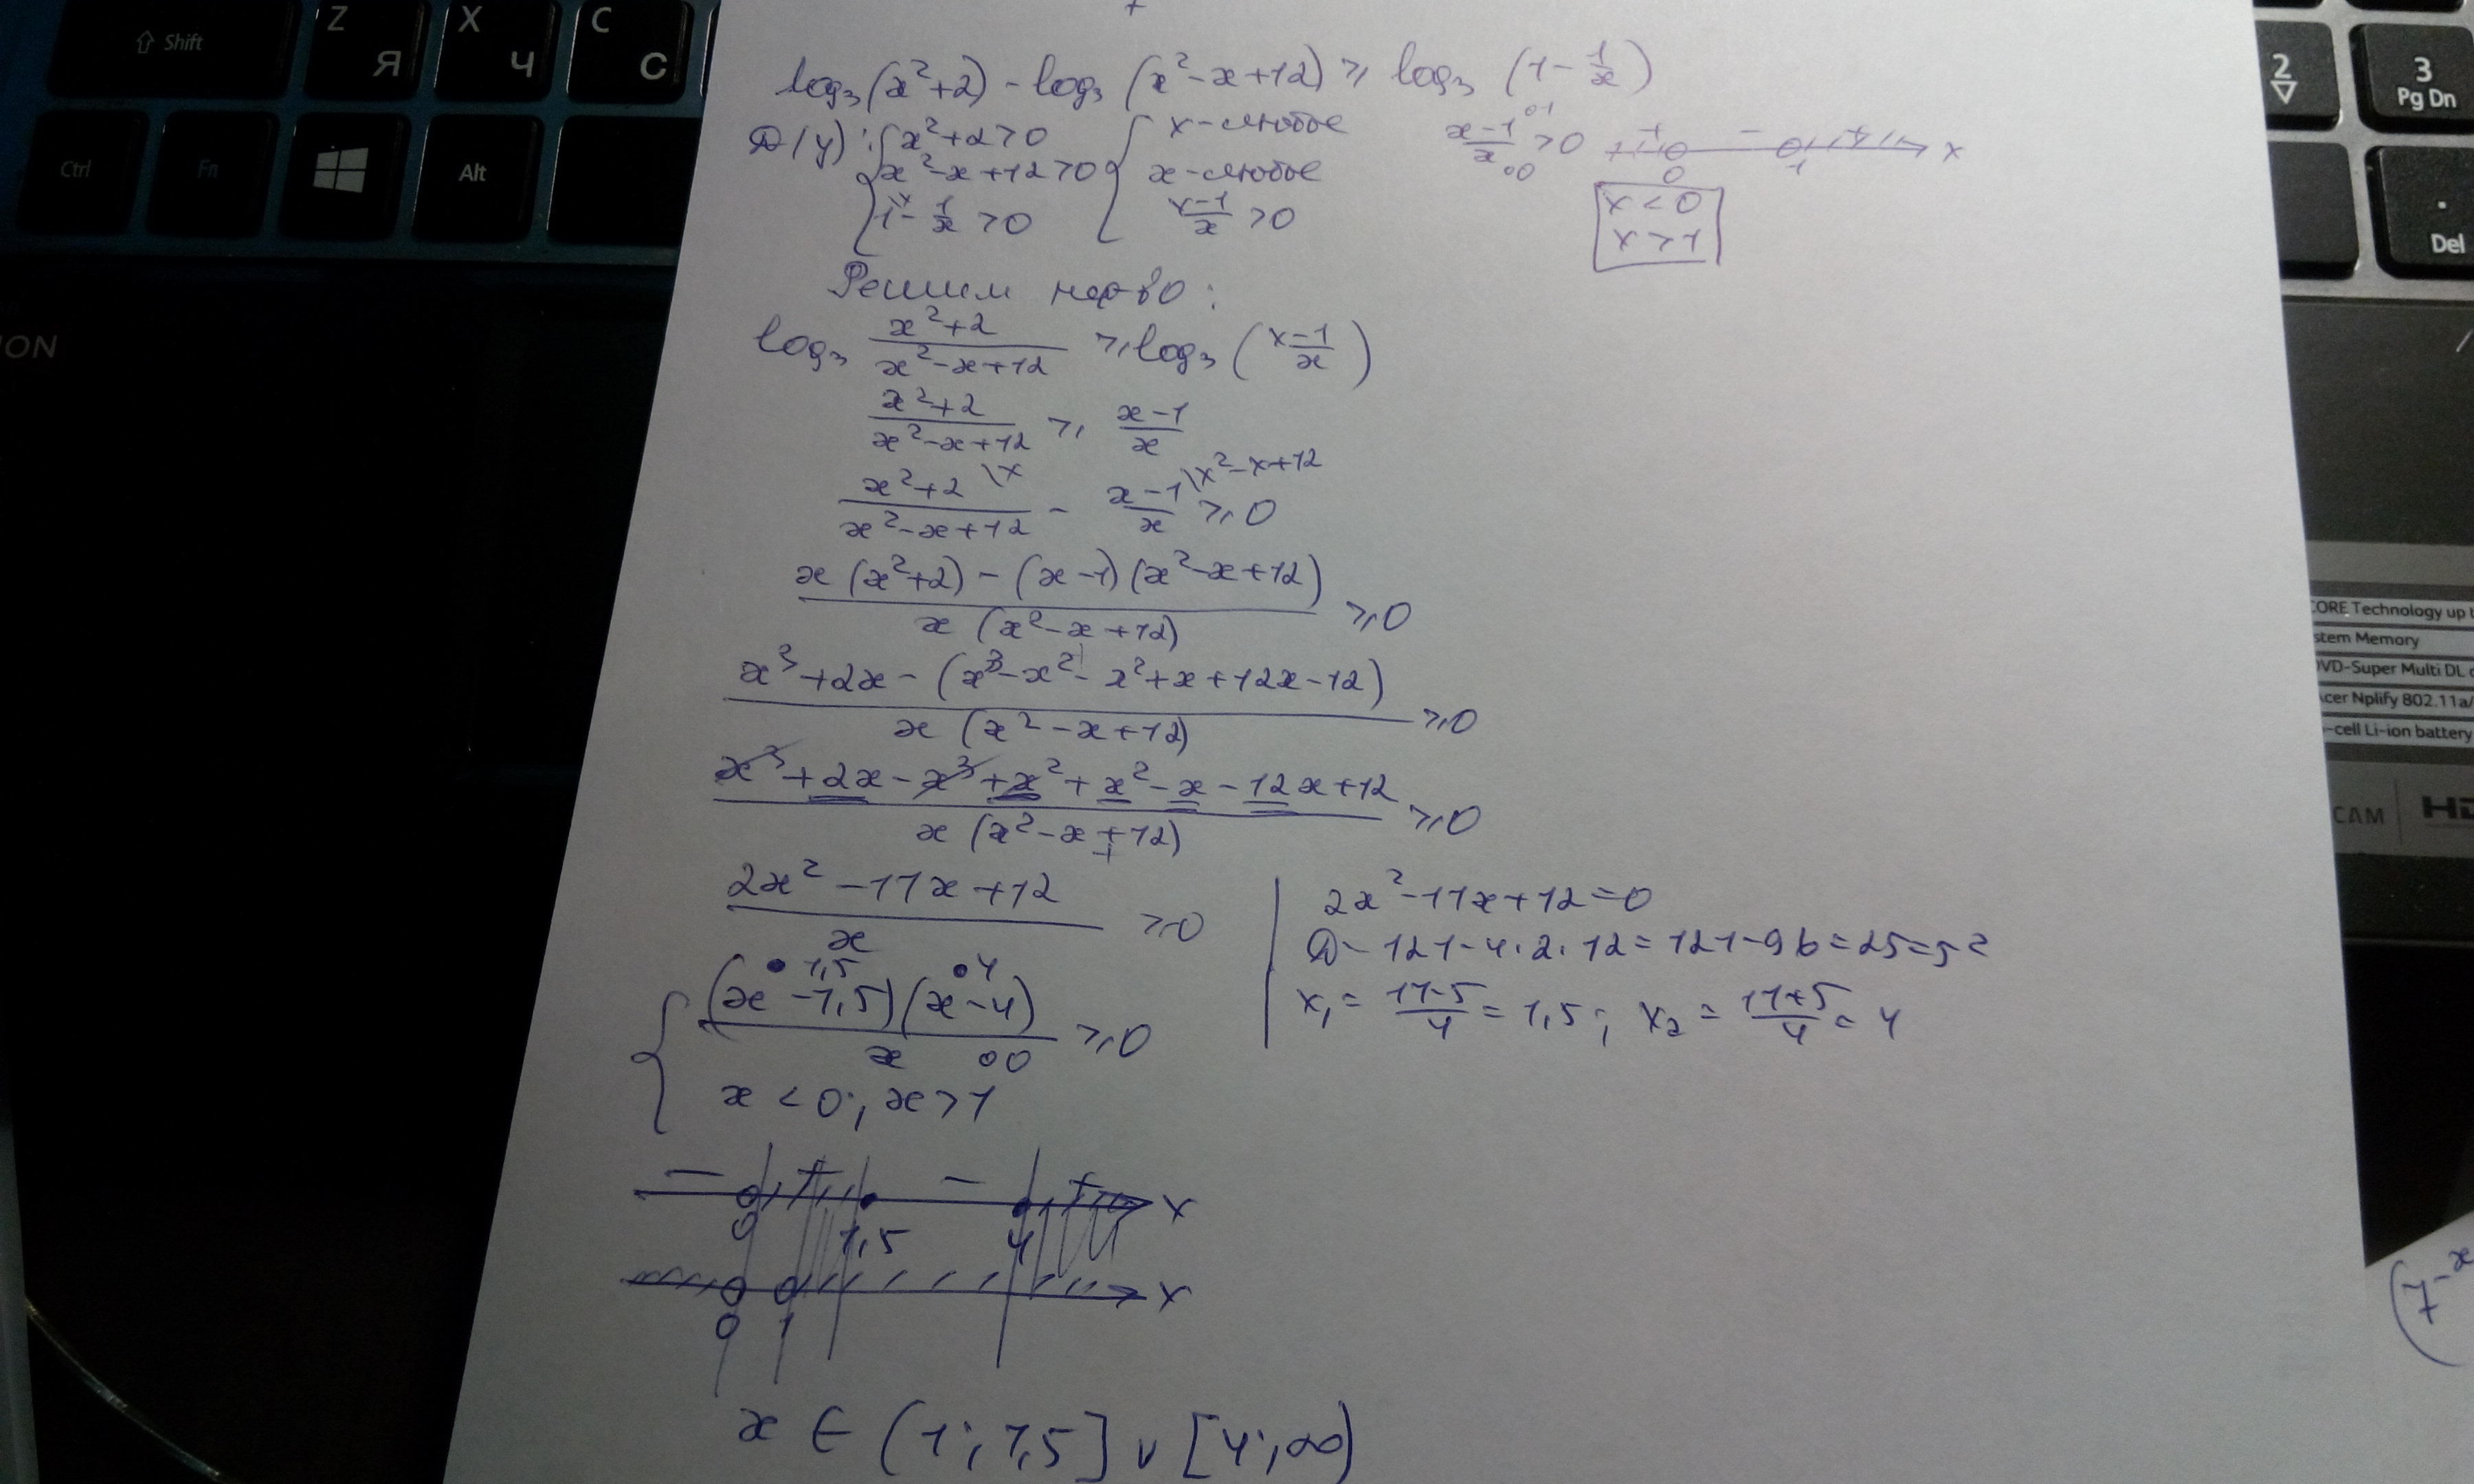 Shift
Z Я
X Ч
C С
Ctrl
Fn
Alt
2
3 Pg Dn
. Del
log₃(x²+2) - log₃(x²-x+12) ⩾ log₃(1-1/x)
D(y): { x²+2>0 { x-любое (x-1)/x >0 + - + x
x²-x+12>0 x-любое 0 1
1-1/x >0 (x-1)/x >0 x<0
x>1
Решим нер-во:
log₃ (x²+2)/(x²-x+12) ⩾ log₃((x-1)/x)
(x²+2)/(x²-x+12) ⩾ (x-1)/x
(x²+2)\x/(x²-x+12) - (x-1)\x²-x+12/x ⩾0
(x(x²+2)-(x-1)(x²-x+12))/(x(x²-x+12)) ⩾0
(x³+2x-(x³-x²-x²+x+12x-12))/(x(x²-x+12)) ⩾0
(x³+2x-x³+x²+x²-x-12x+12)/(x(x²-x+12)) ⩾0
(2x²-11x+12)/x ⩾0
2x²-11x+12=0
D=121-4·2·12=121-96=25=5²
x₁=(11-5)/4=1,5; x₂=(11+5)/4=4
•1,5 •4
{ ((x-1,5)(x-4))/x ⩾0
∘0
x<0; x>1
- + - + x
0 1,5 4
x
0 1
x ∈ (1; 1,5] ∪ [4; ∞)
ION
CORE Technology up t
stem Memory
DVD-Super Multi DL
cer Nplify 802.11a/
-cell Li-ion battery
CAM HD
(7-x